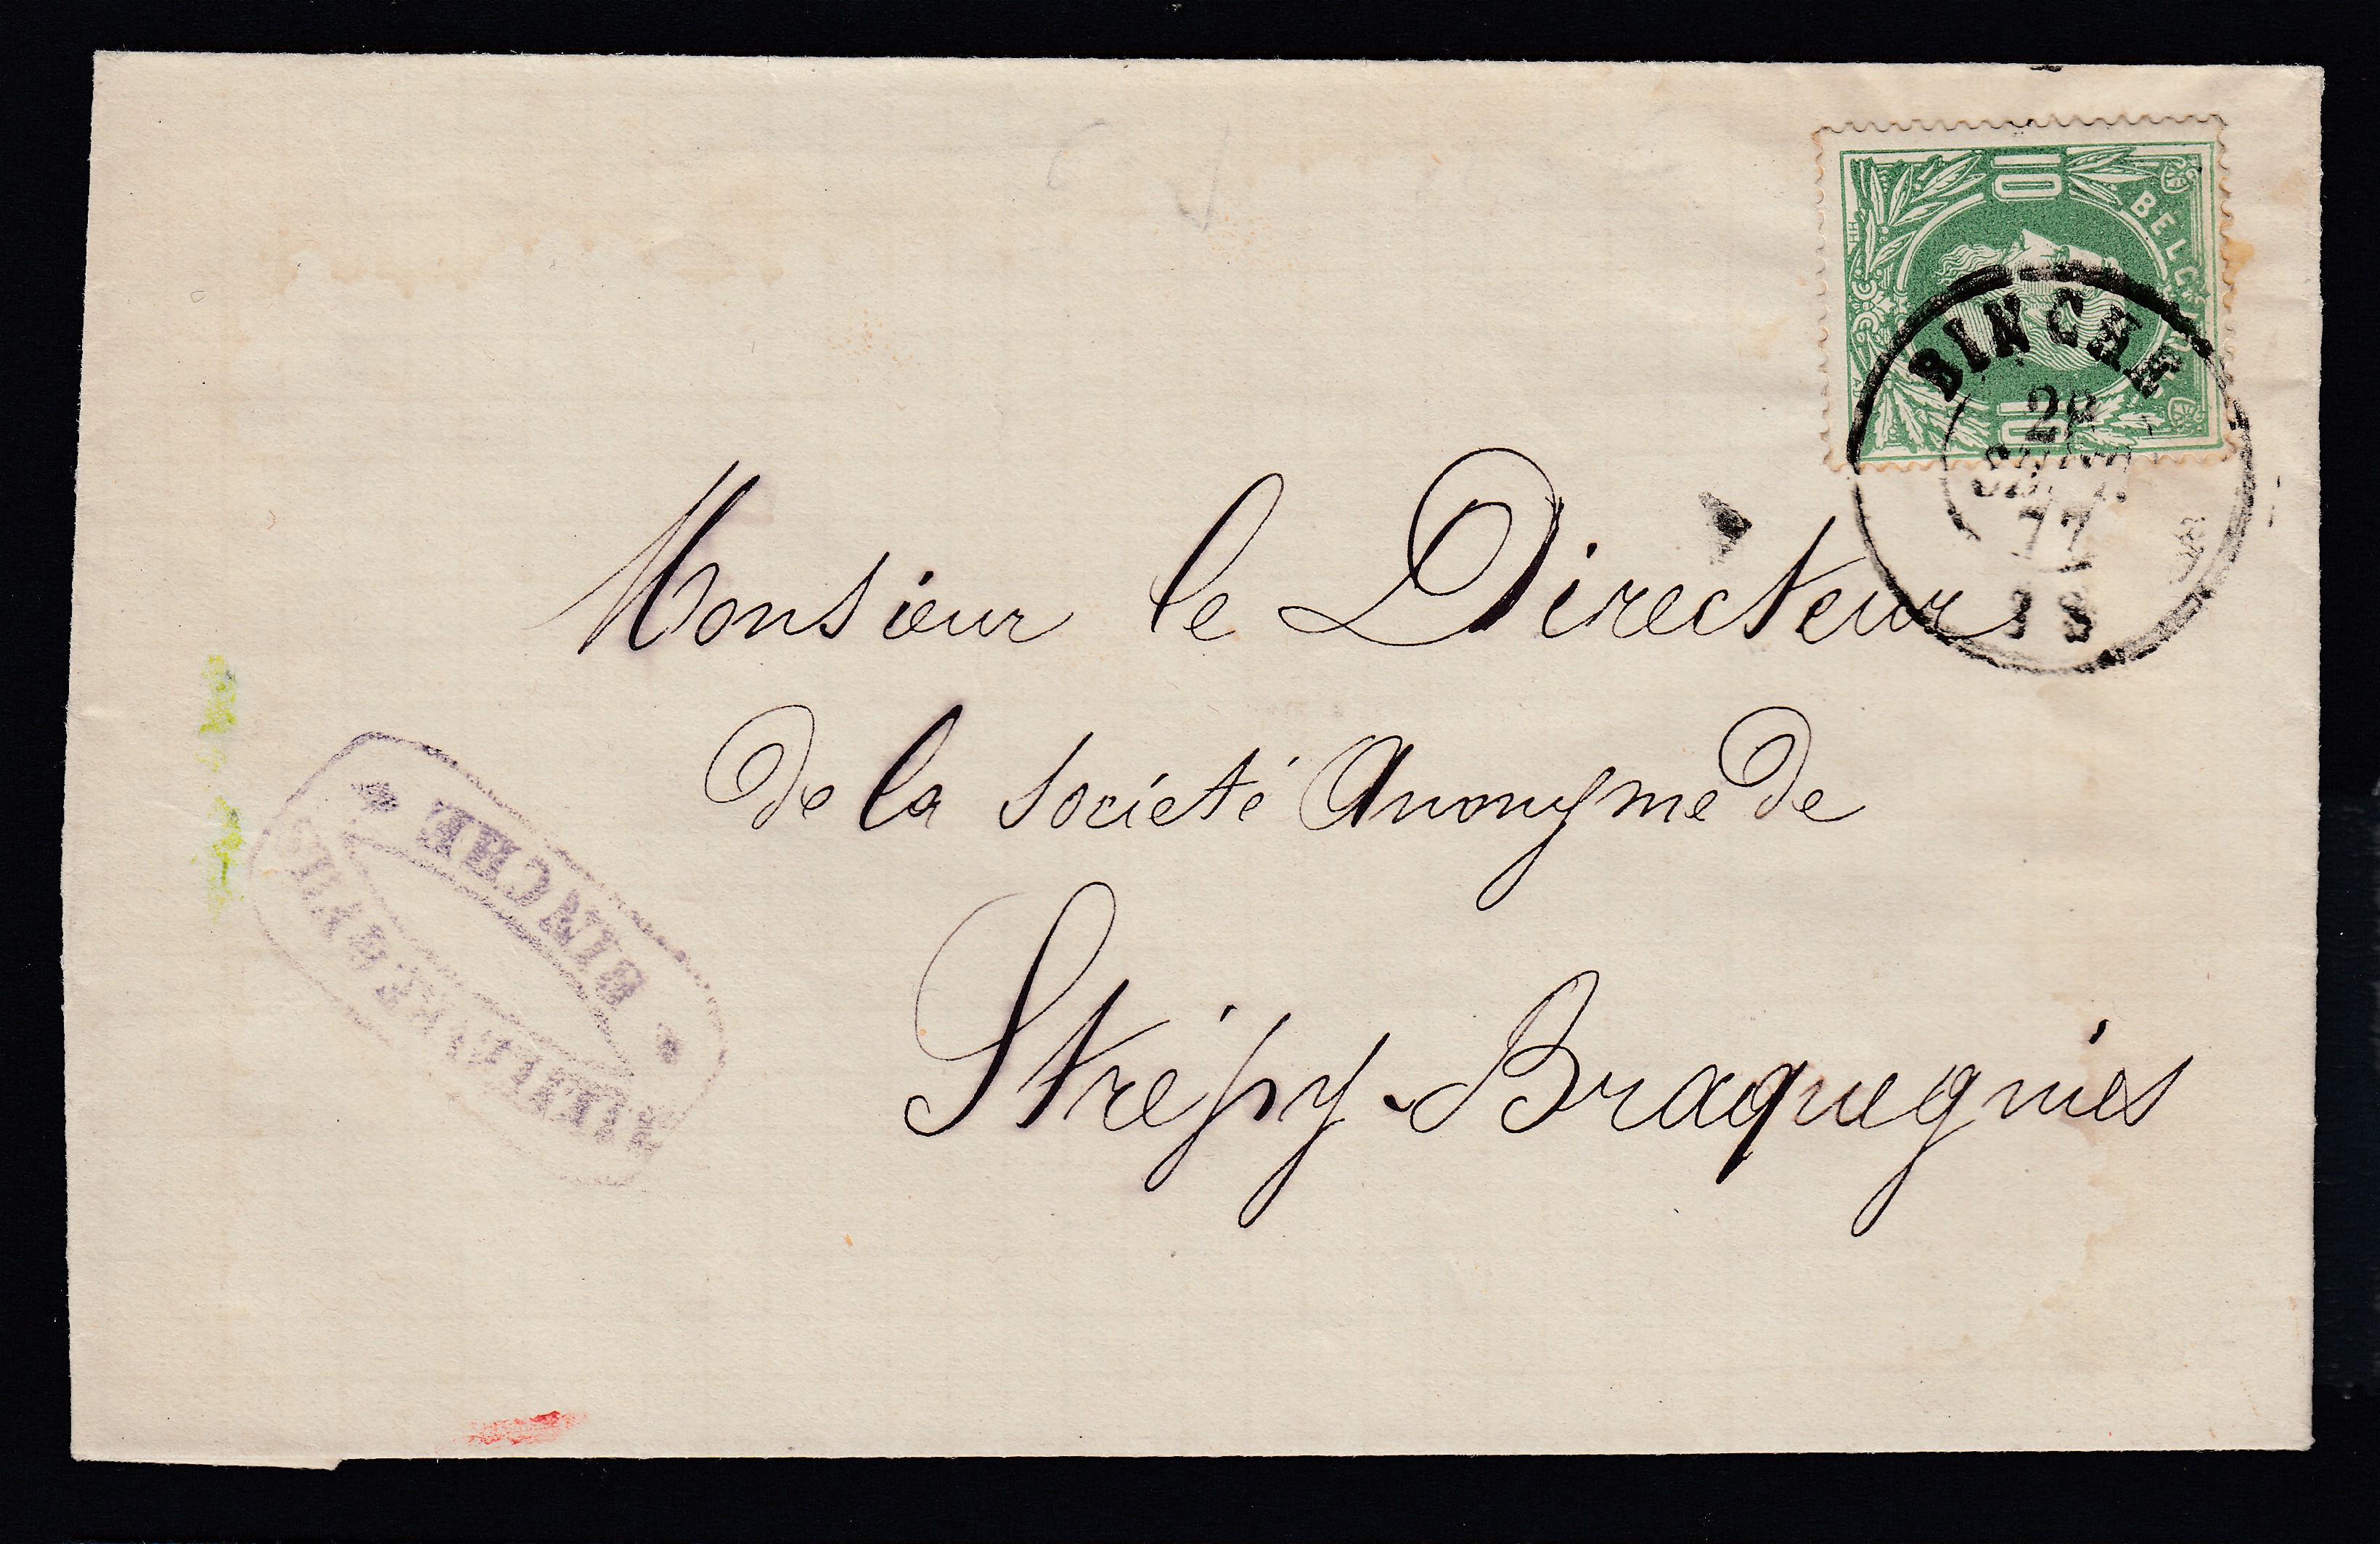 10
BELGIQUE
10
BINCHE
77
Monsieur le Directeur
de la Société Anonyme de
Strépy-Braquegnies
BINCHE